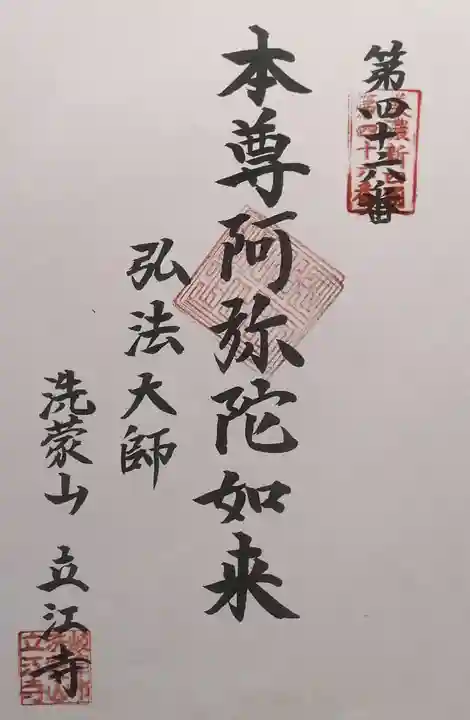 第四十六番
本尊阿弥陀如来
弘法大師
洗蒙山 立江寺
立江寺